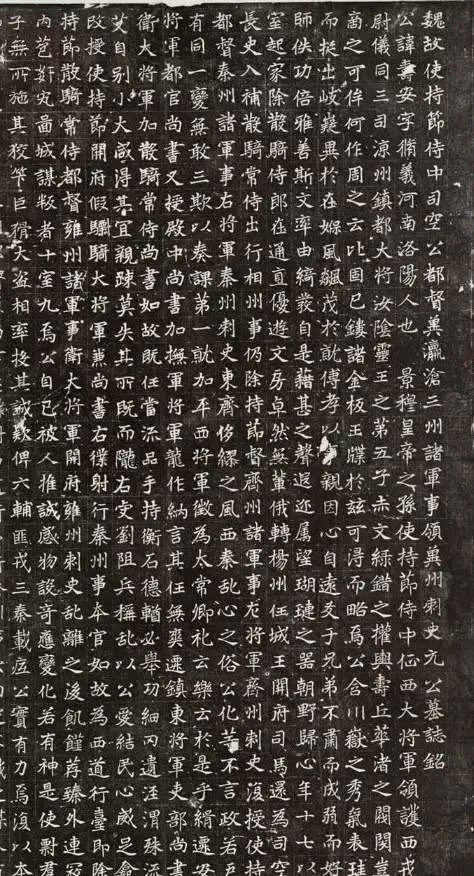 魏故使持節侍中司空公都督冀瀛滄三州諸軍事領冀州刺史元公墓誌銘
公諱壽安字脩義河南洛陽人也 景穆皇帝之孫使持節侍中征西大將軍領護西戎
尉儀同三司涼州鎮都大將汝陰靈王之第五子赤文綠錯之權輿壽丘華渚之閥閱豈
商之可侔何作周之云比固已鏤諸金板玉牒於茲可得而略焉公含川嶽之秀氣表珪
而挺出岐嶷異於在媬風飆茂於就傅孝以事親因心自遠友于兄弟不肅而成弱而好
師佚功倍雅善斯文率由綺發自是藉甚之聲遐邇屬望瑚璉之器朝野歸心年十七以
室起家除散騎侍郎在通直優遊文房卓然無輩俄轉楊州任城王開府司馬還為司空
長史入補散騎常侍出行相州事仍除持節督齊州諸軍事左將軍齊州刺史復授使持
都督秦州諸軍事右將軍秦州刺史東齊侈繆之風西秦亂心之俗公化若不言政若戶
有同一變無敢三欺以奏課第一就加平西將軍徵為太常卿礼云樂云於是乎緝還為
將軍都官尚書又授殿中尚書加撫軍將軍龍作納言其任無爽還鎮東將軍吏部尚書
衛大將軍加散騎常侍尚書如故既任當流品手持衡石德輶必舉功細罔遺涇渭殊流
艾自别小大咸得其宜親踈莫失其所既而隴右妖劉阻兵稱亂以公愛結民心威足
改授使持節開府假驃騎大將軍兼尚書右僕射行秦州事本官如故為西道行臺即除
持節散騎常侍都督雍州諸軍事衛大將軍開府雍州刺史乱離之後飢饉荐臻外連
内苞奸宄啚城謀叛者十室九焉公自己被人推誠感物設奇應變化若有神是使
子無所施其狡筭巨猾大盗相率投其誠欵俾六輔匪戎三秦載底公實有力焉復以本